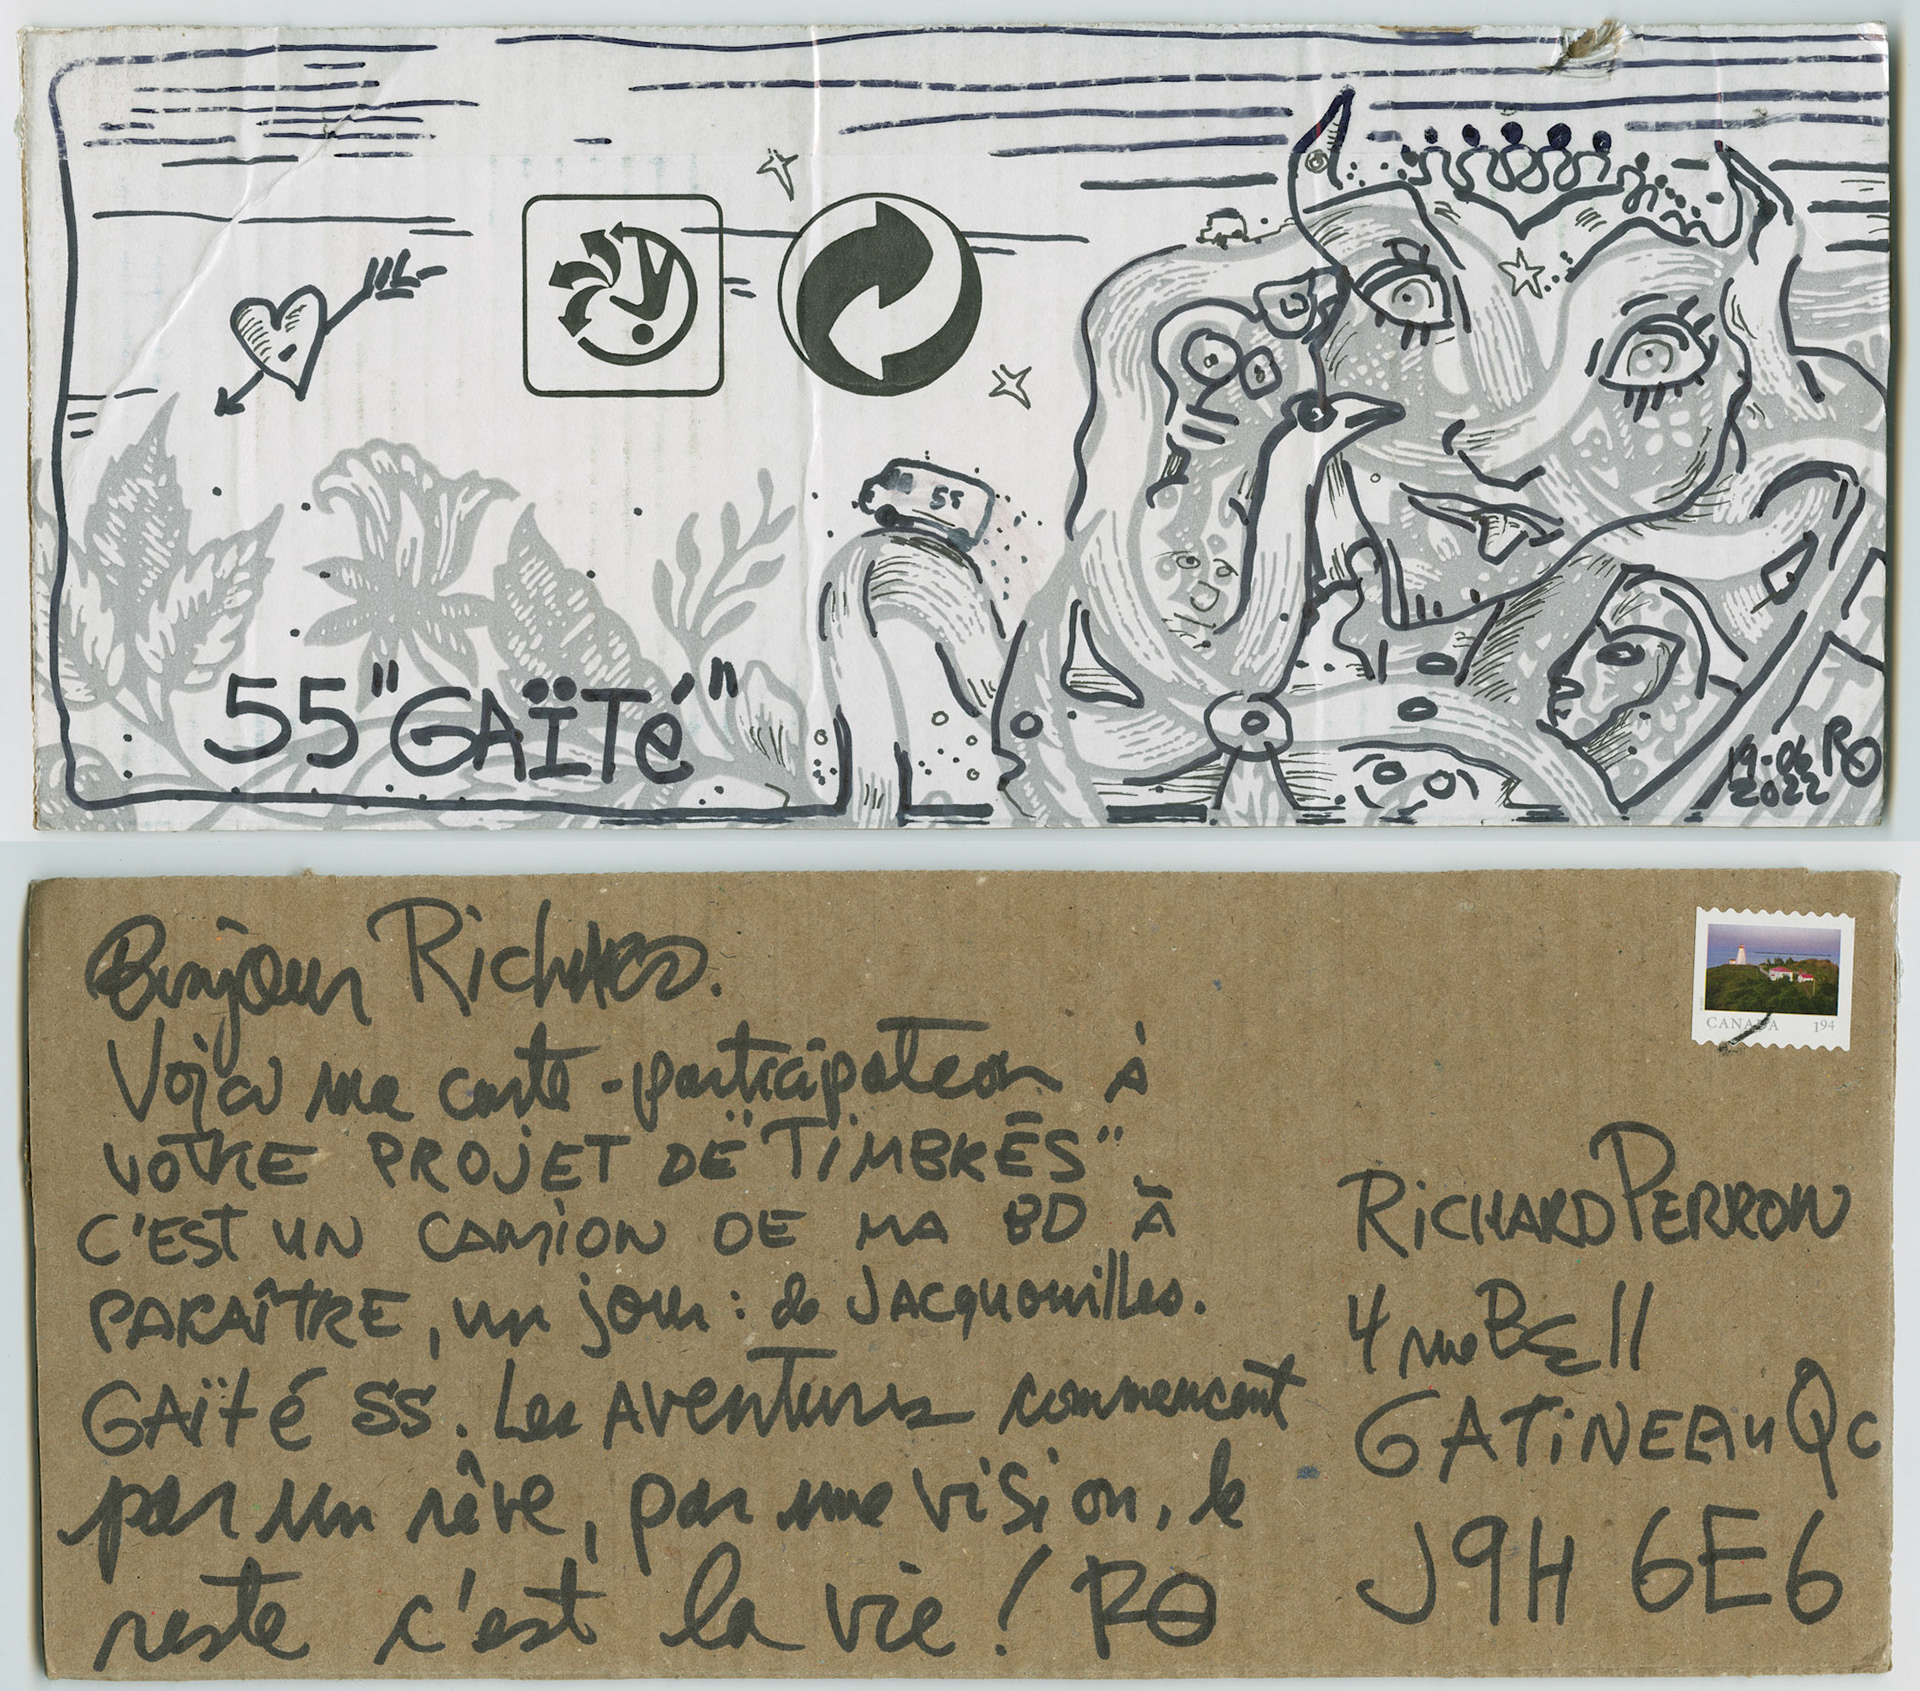 55
55 "GAÏTÉ"
19-06
2022 RO
Bonjour Richard.
Voici ma carte-participation à
VOTRE PROJET DE "TIMBRÉS"
C'EST UN CAMION DE MA BD À
PARAÎTRE, un jour: de JACQUOUILLES.
GAÏté 55. Les AVENTURES commencent
par un rêve, par une vision, le
reste c'est la vie! RO
CANADA 194
RICHARD PERRON
4 rue BELL
GATINEAU Qc
J9H 6E6